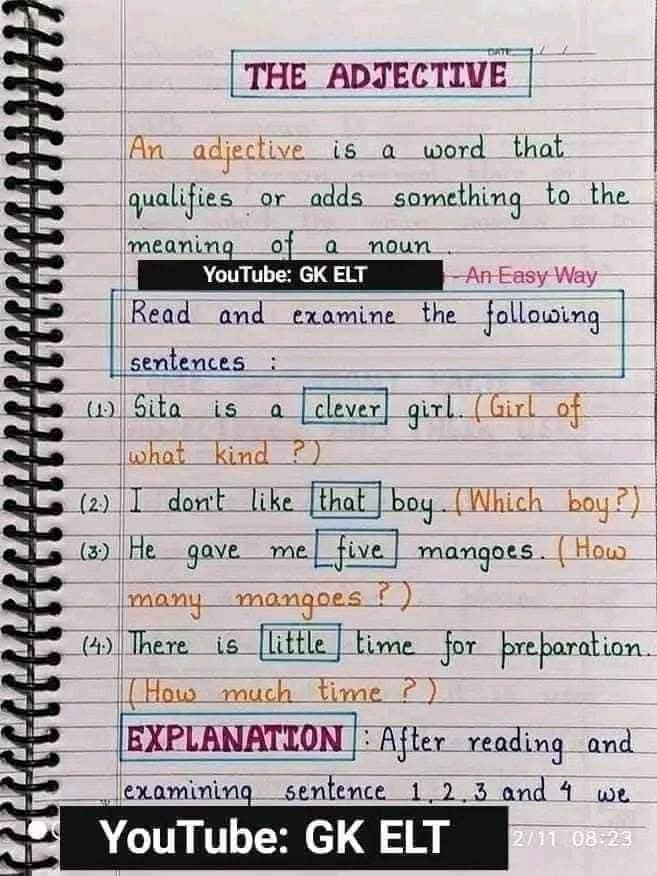 DATE / /
THE ADJECTIVE
An adjective is a word that
qualifies or adds something to the
meaning of a noun.
YouTube: GK ELT - An Easy Way
Read and examine the following
sentences :
(1.) Sita is a clever girl. (Girl of
what kind ?)
(2.) I don't like that boy. (Which boy?)
(3.) He gave me five mangoes. (How
many mangoes ?)
(4.) There is little time for preparation.
(How much time ?)
EXPLANATION : After reading and
examining sentence 1, 2, 3 and 4 we
YouTube: GK ELT 2/11 08:23